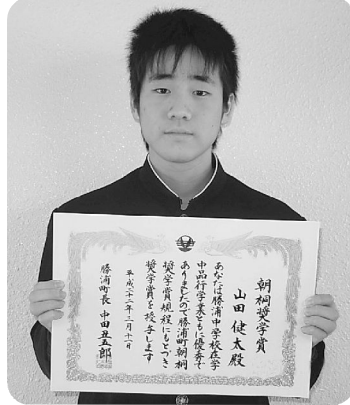 朝桐奨学賞
山田健太殿
あなたは勝浦中学校在学
中品行学業ともに優秀で
ありましたので勝浦町朝桐
奨学賞規程にもとづき
奨学賞を授与します
平成二十二年三月十一日
勝浦町長 中田丑五郎